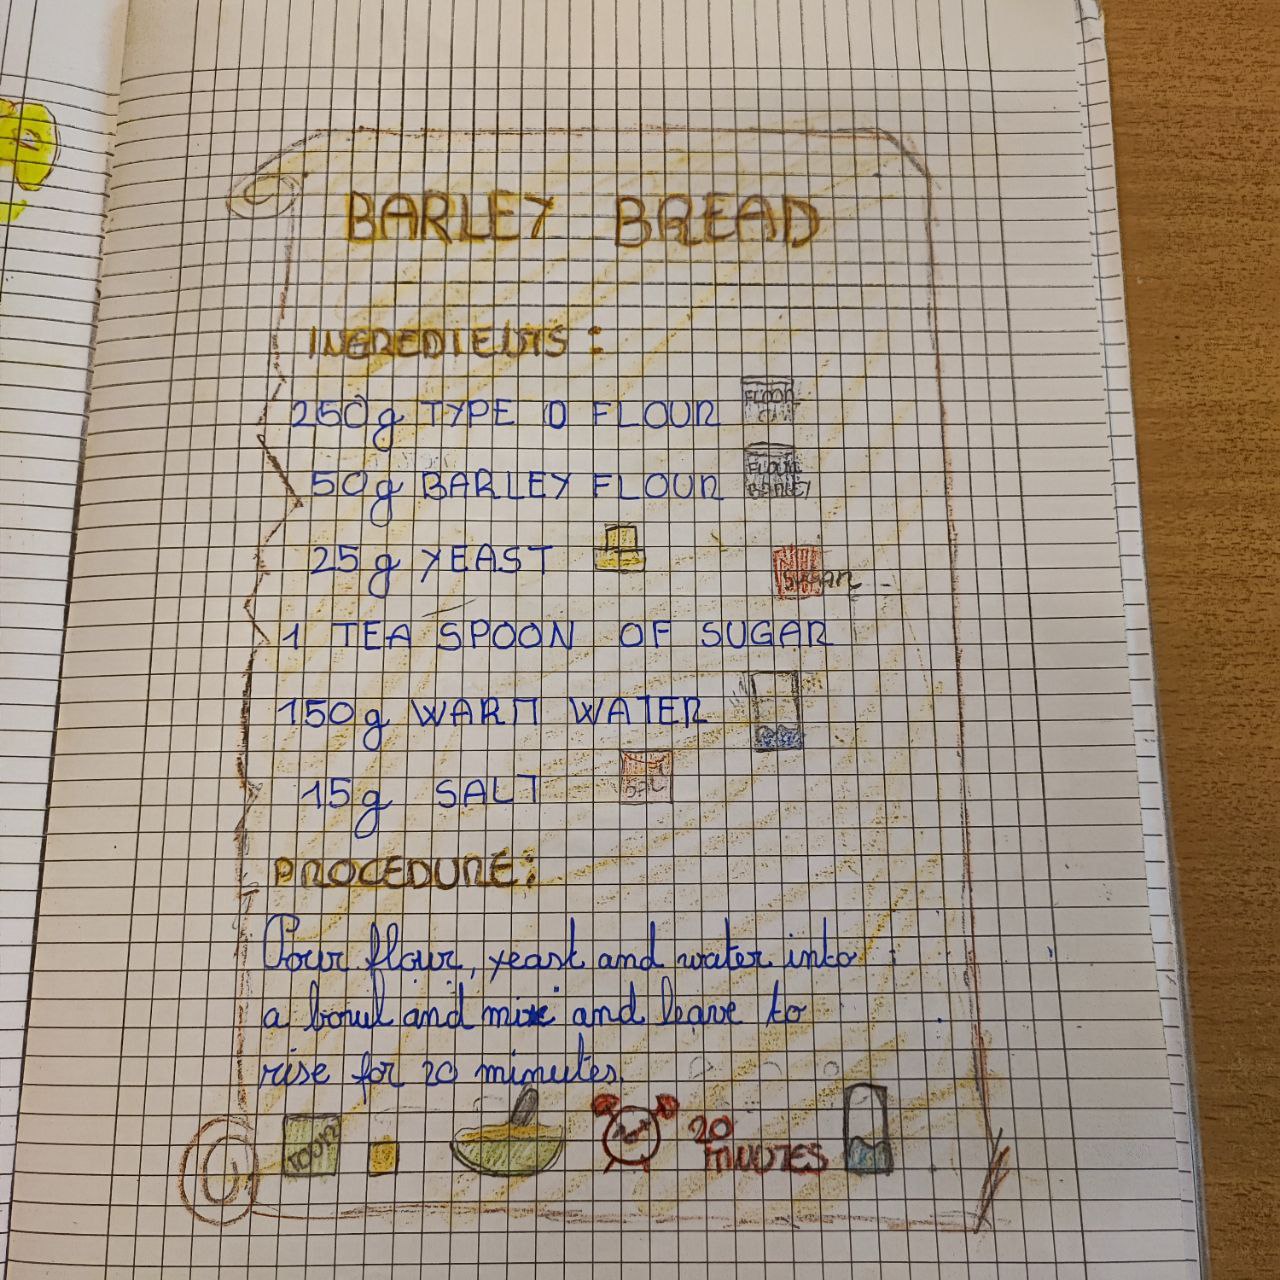 BARLEY BREAD
INGREDIENTS:
250g TYPE 0 FLOUR
50g BARLEY FLOUR
FLOUR
BARLEY
25g YEAST
SUGAR
1 TEA SPOON OF SUGAR
150g WARM WATER
15g SALT
SAL
PROCEDURE:
Pour flour, yeast and water into
a bowl and mixe and leave to
rise for 20 minutes.
20
MINUTES